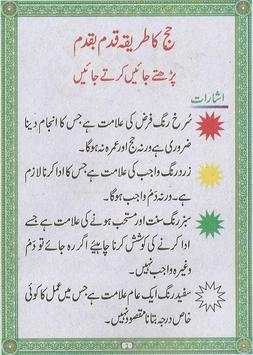 حج کا طریقہ قدم بقدم
پڑھتے جائیں کرتے جائیں
اشارات
سُرخ رنگ فرض کی علامت ہے جس کا انجام دینا
ضروری ہے ورنہ حج اور عمرہ نہ ہوگا۔
زرد رنگ واجب کی علامت ہے جس کا ادا کرنا لازم
ہے۔ ورنہ دَمْ واجب ہوگا۔
سبز رنگ سنت اور مستحب ہونے کی علامت ہے جسے
ادا کرنے کی کوشش کرنا چاہیئے اگر رہ جائے تو دَمْ
وغیرہ واجب نہیں۔
سفید رنگ ایک عام علامت ہے جس میں عمل کا کوئی
خاص درجہ بتانا مقصود نہیں۔